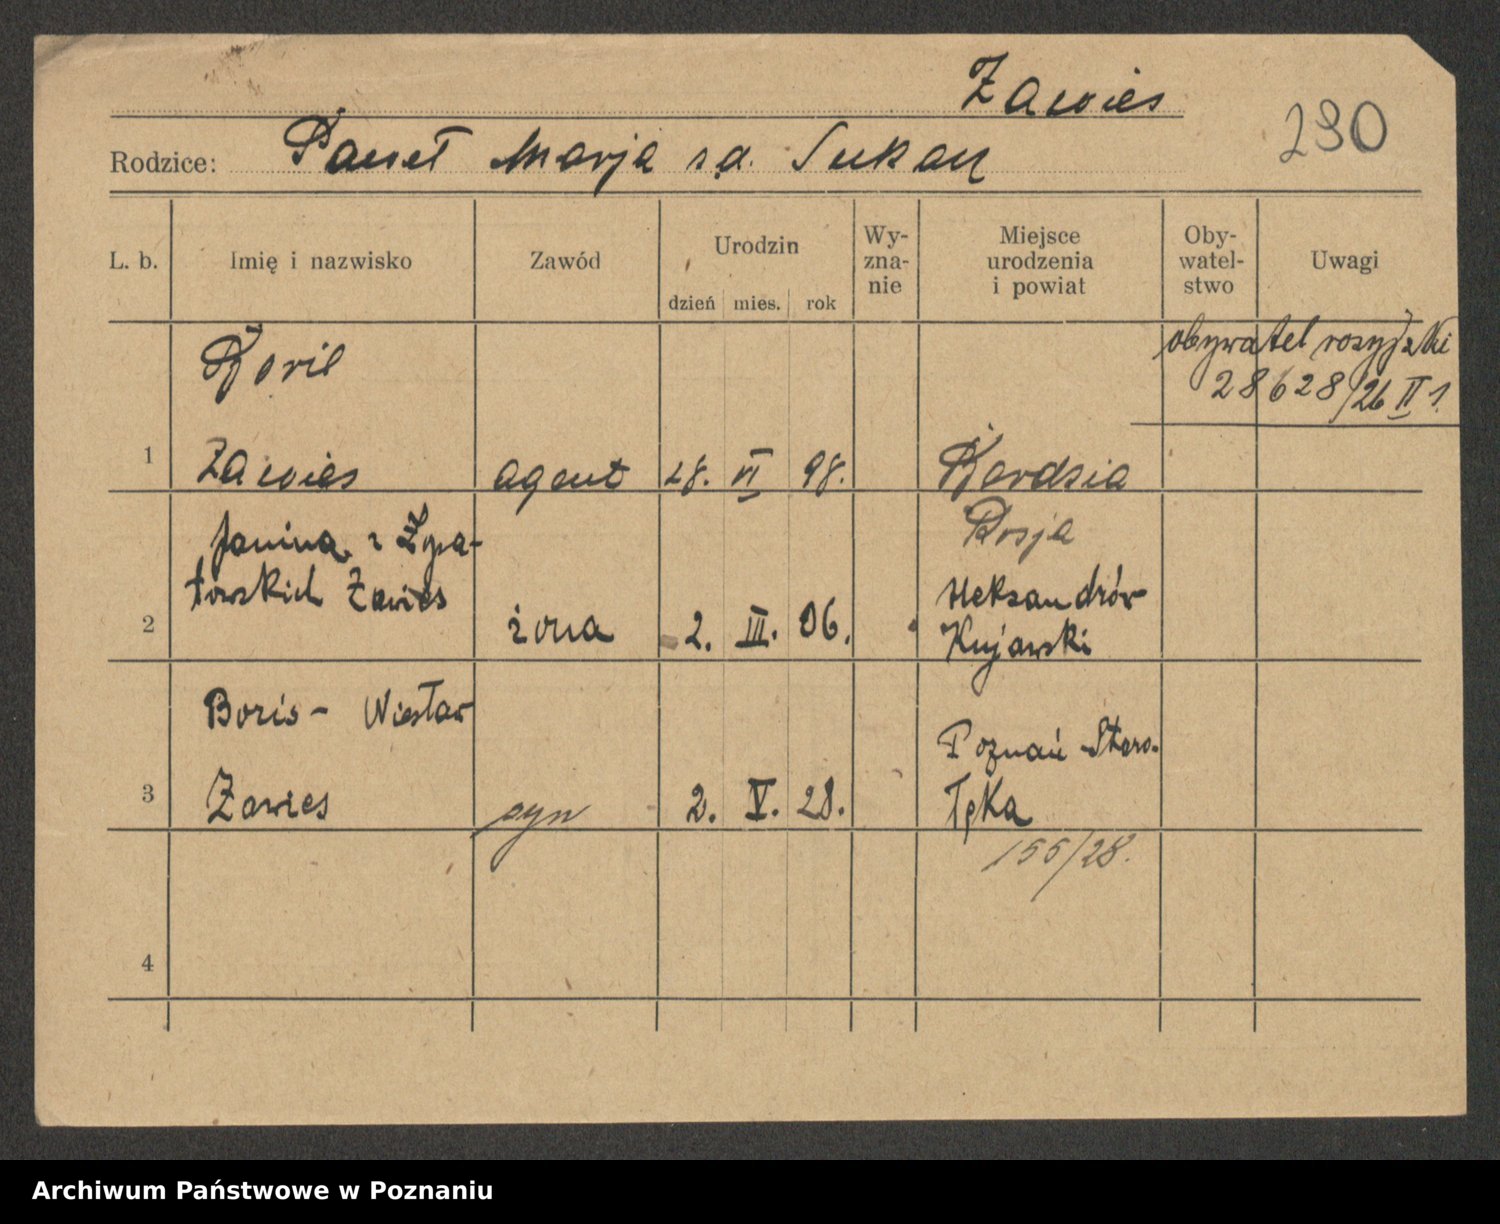 Zawies
290
Rodzice: Paweł Marja z d. Sukan
L. b. Imię i nazwisko Zawód Urodzin dzień mies. rok Wy-zna-nie Miejsce urodzenia i powiat Oby-watel-stwo Uwagi
obywatel rosyjski
28628/26 II 1.
Boril
1 Zawies agent 28. VI 98. Kordzia
Rosja
Janina z Zypa-
towskich Zawies Aleksandrów
2 żona 2. III. 06. Kujawski
Boris - Wiesław
Poznań Staro-
3 Zawies syn 2. V. 28. łęka
155/28.
4
Archiwum Państwowe w Poznaniu